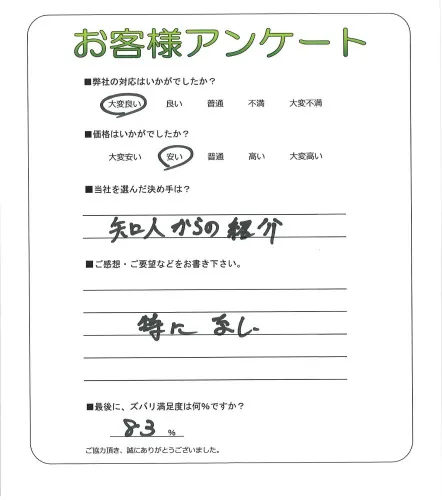 お客様アンケート
■弊社の対応はいかがでしたか?
大変良い 良い 普通 不満 大変不満
■価格はいかがでしたか?
大変安い 安い 普通 高い 大変高い
■当社を選んだ決め手は?
知人からの紹介
■ご感想・ご要望などをお書き下さい。
特になし
■最後に、ズバリ満足度は何%ですか?
83 %
ご協力頂き、誠にありがとうございました。